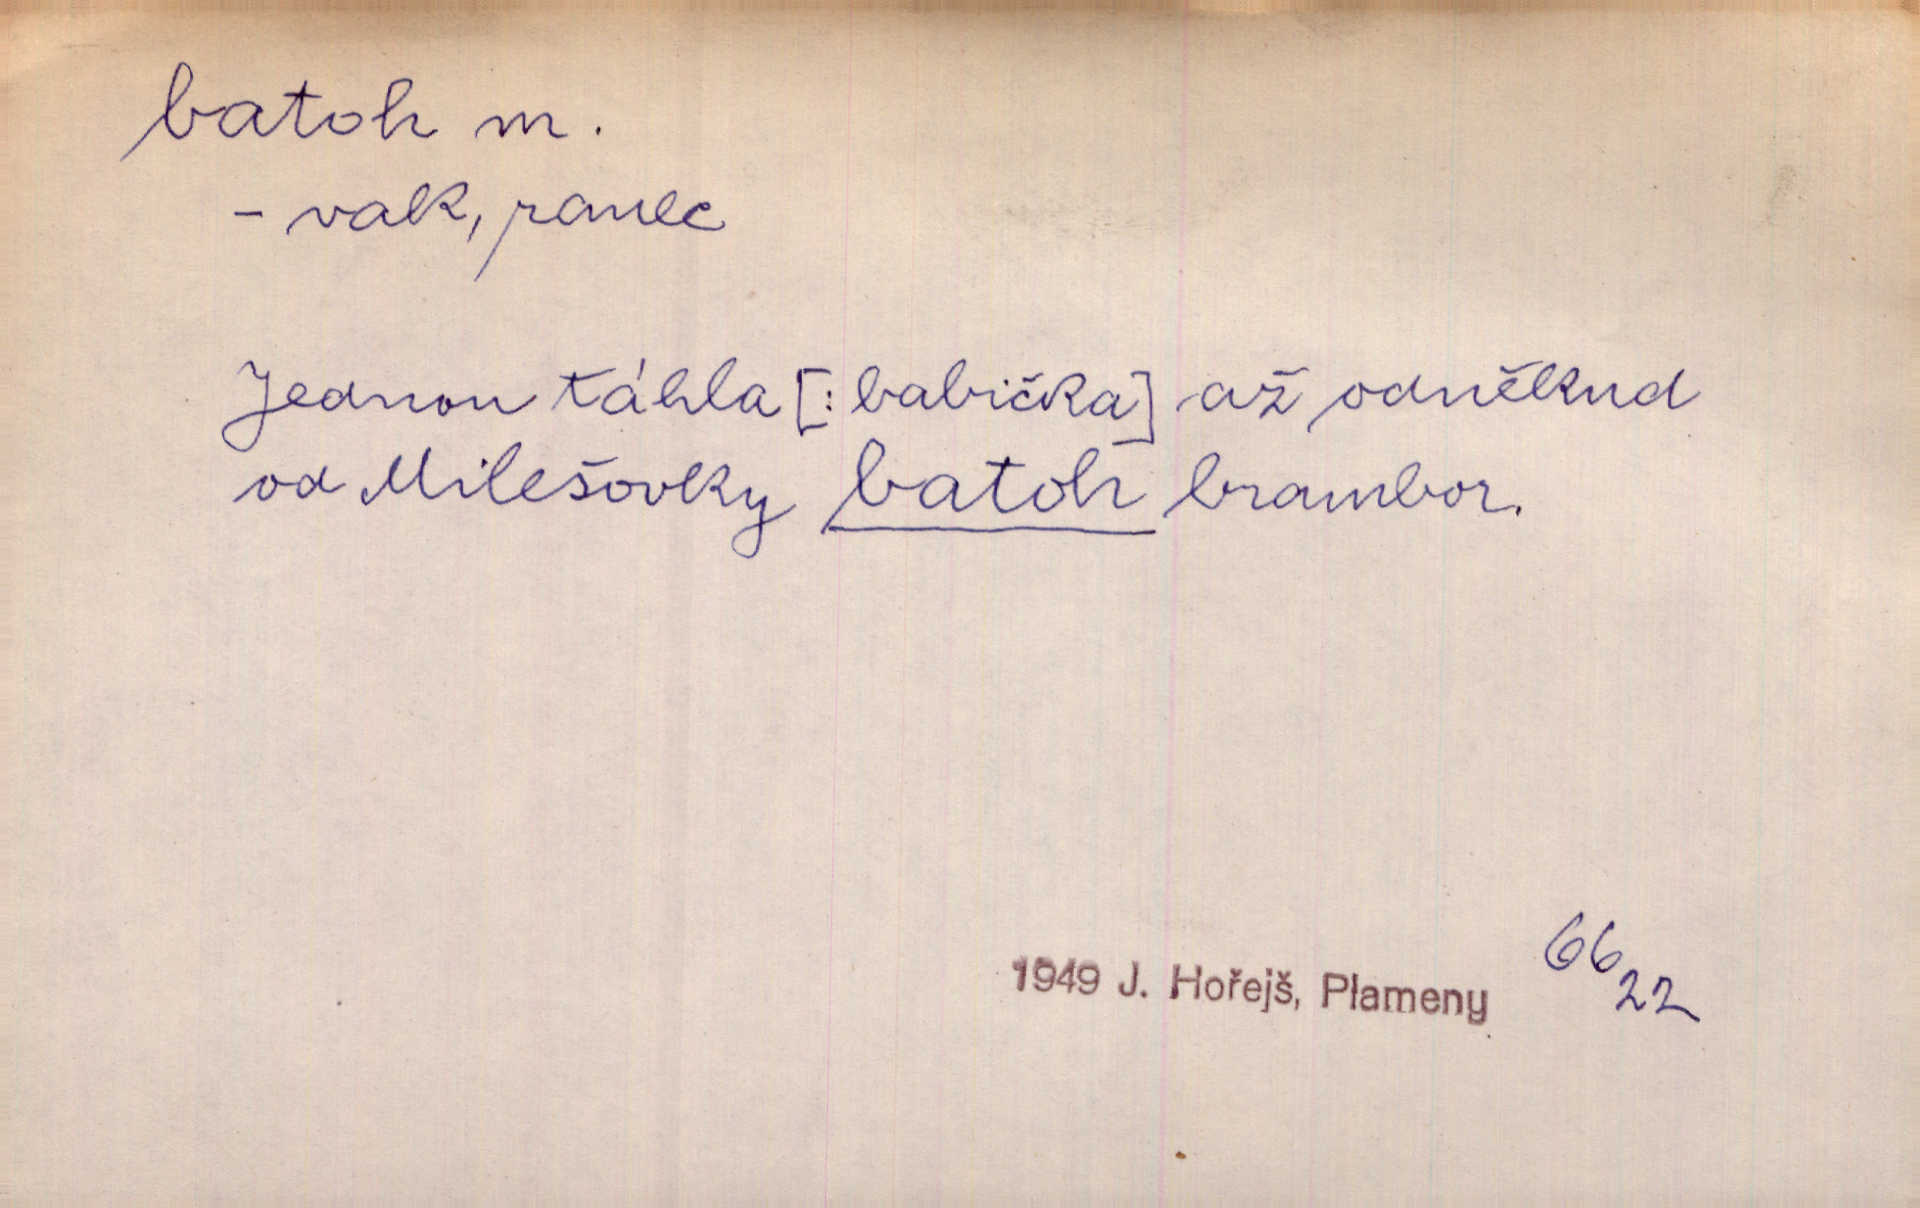 batoh m.
- vak, ranec
Jednou táhla [: babička] až odněkud
od Milešovky batoh brambor.
1949 J. Hořejš, Plameny 66
22